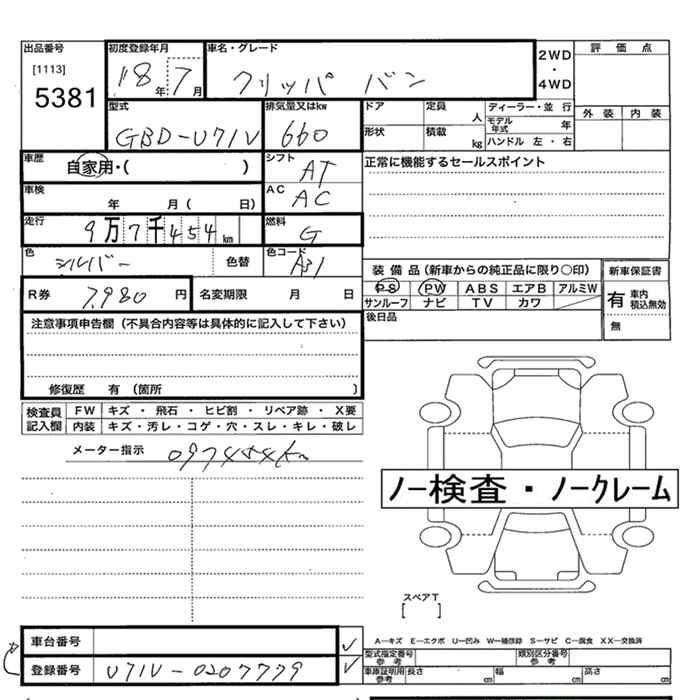 出品番号 初度登録年月 車名・グレード 2WD・4WD 評価点
[1113]
5381 18年 7月 クリッパ バン
型式 排気量又はkw ドア 定員 人 ディーラー・並行 外装 内装
GBD-U71V 660 形状 積載 kg モデル年式 年
ハンドル 左・右
車歴 自家用・( ) シフト AT 正常に機能するセールスポイント
車検 年 月( 日) AC AC
走行 9万7千454km 燃料 G
色 シルバー 色替 色コード
装備品(新車からの純正品に限り○印) 新車保証書
R券 7,980円 名変期限 月 日 PS PW ABS エアB アルミW 有 車内 積込無効
サンルーフ ナビ TV カワ
注意事項申告欄(不具合内容等は具体的に記入して下さい) 後日品 無
修復歴 有 (箇所 )
検査員記入欄 FW キズ・飛石・ヒビ割・リペア跡・X要
内装 キズ・汚レ・コゲ・穴・スレ・キレ・破レ
メーター指示 097454km
ノー検査・ノークレーム
スペアT
[ ]
車台番号 A―キズ E―エクボ U―凹み W―補修跡 S―サビ C―腐食 XX―交換済
型式指定番号 参考 類別区分番号 参考
登録番号 U71V-0207779 車庫証明用 参考 長さ cm 幅 cm 高さ cm